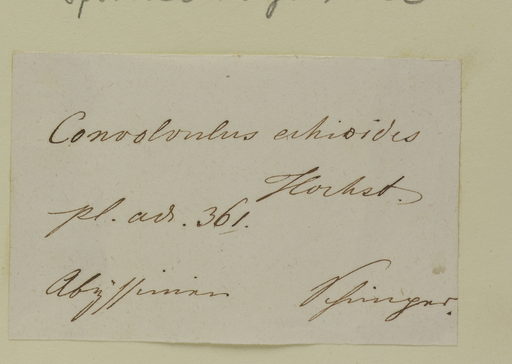 Convolvulus echioides
Hochst.
pl. adv. 361.
Abyssinien Schimper.